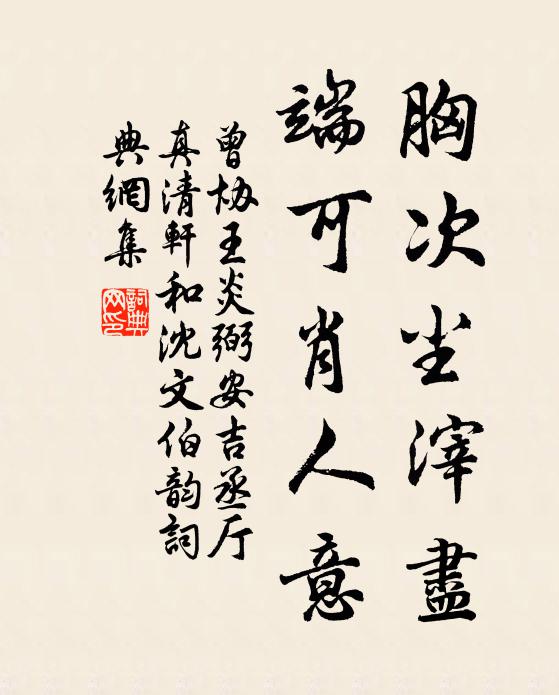 胸次尘滓盡
端可肖人意
曾协王炎弼安吉丞厅
真清軒和沈文伯韵詞
典網集
詞典
网印